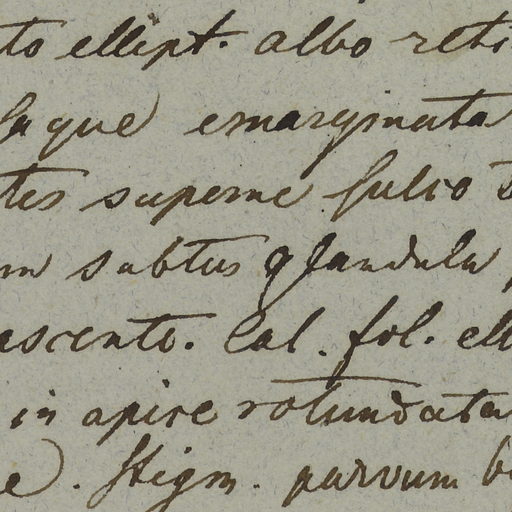 to ellipt. albo reti
que emarginata
tes superne sulco
m subtus glandula
ascento. Cal. fol. ell
in apice rotundata
e. Stigm. parvum b